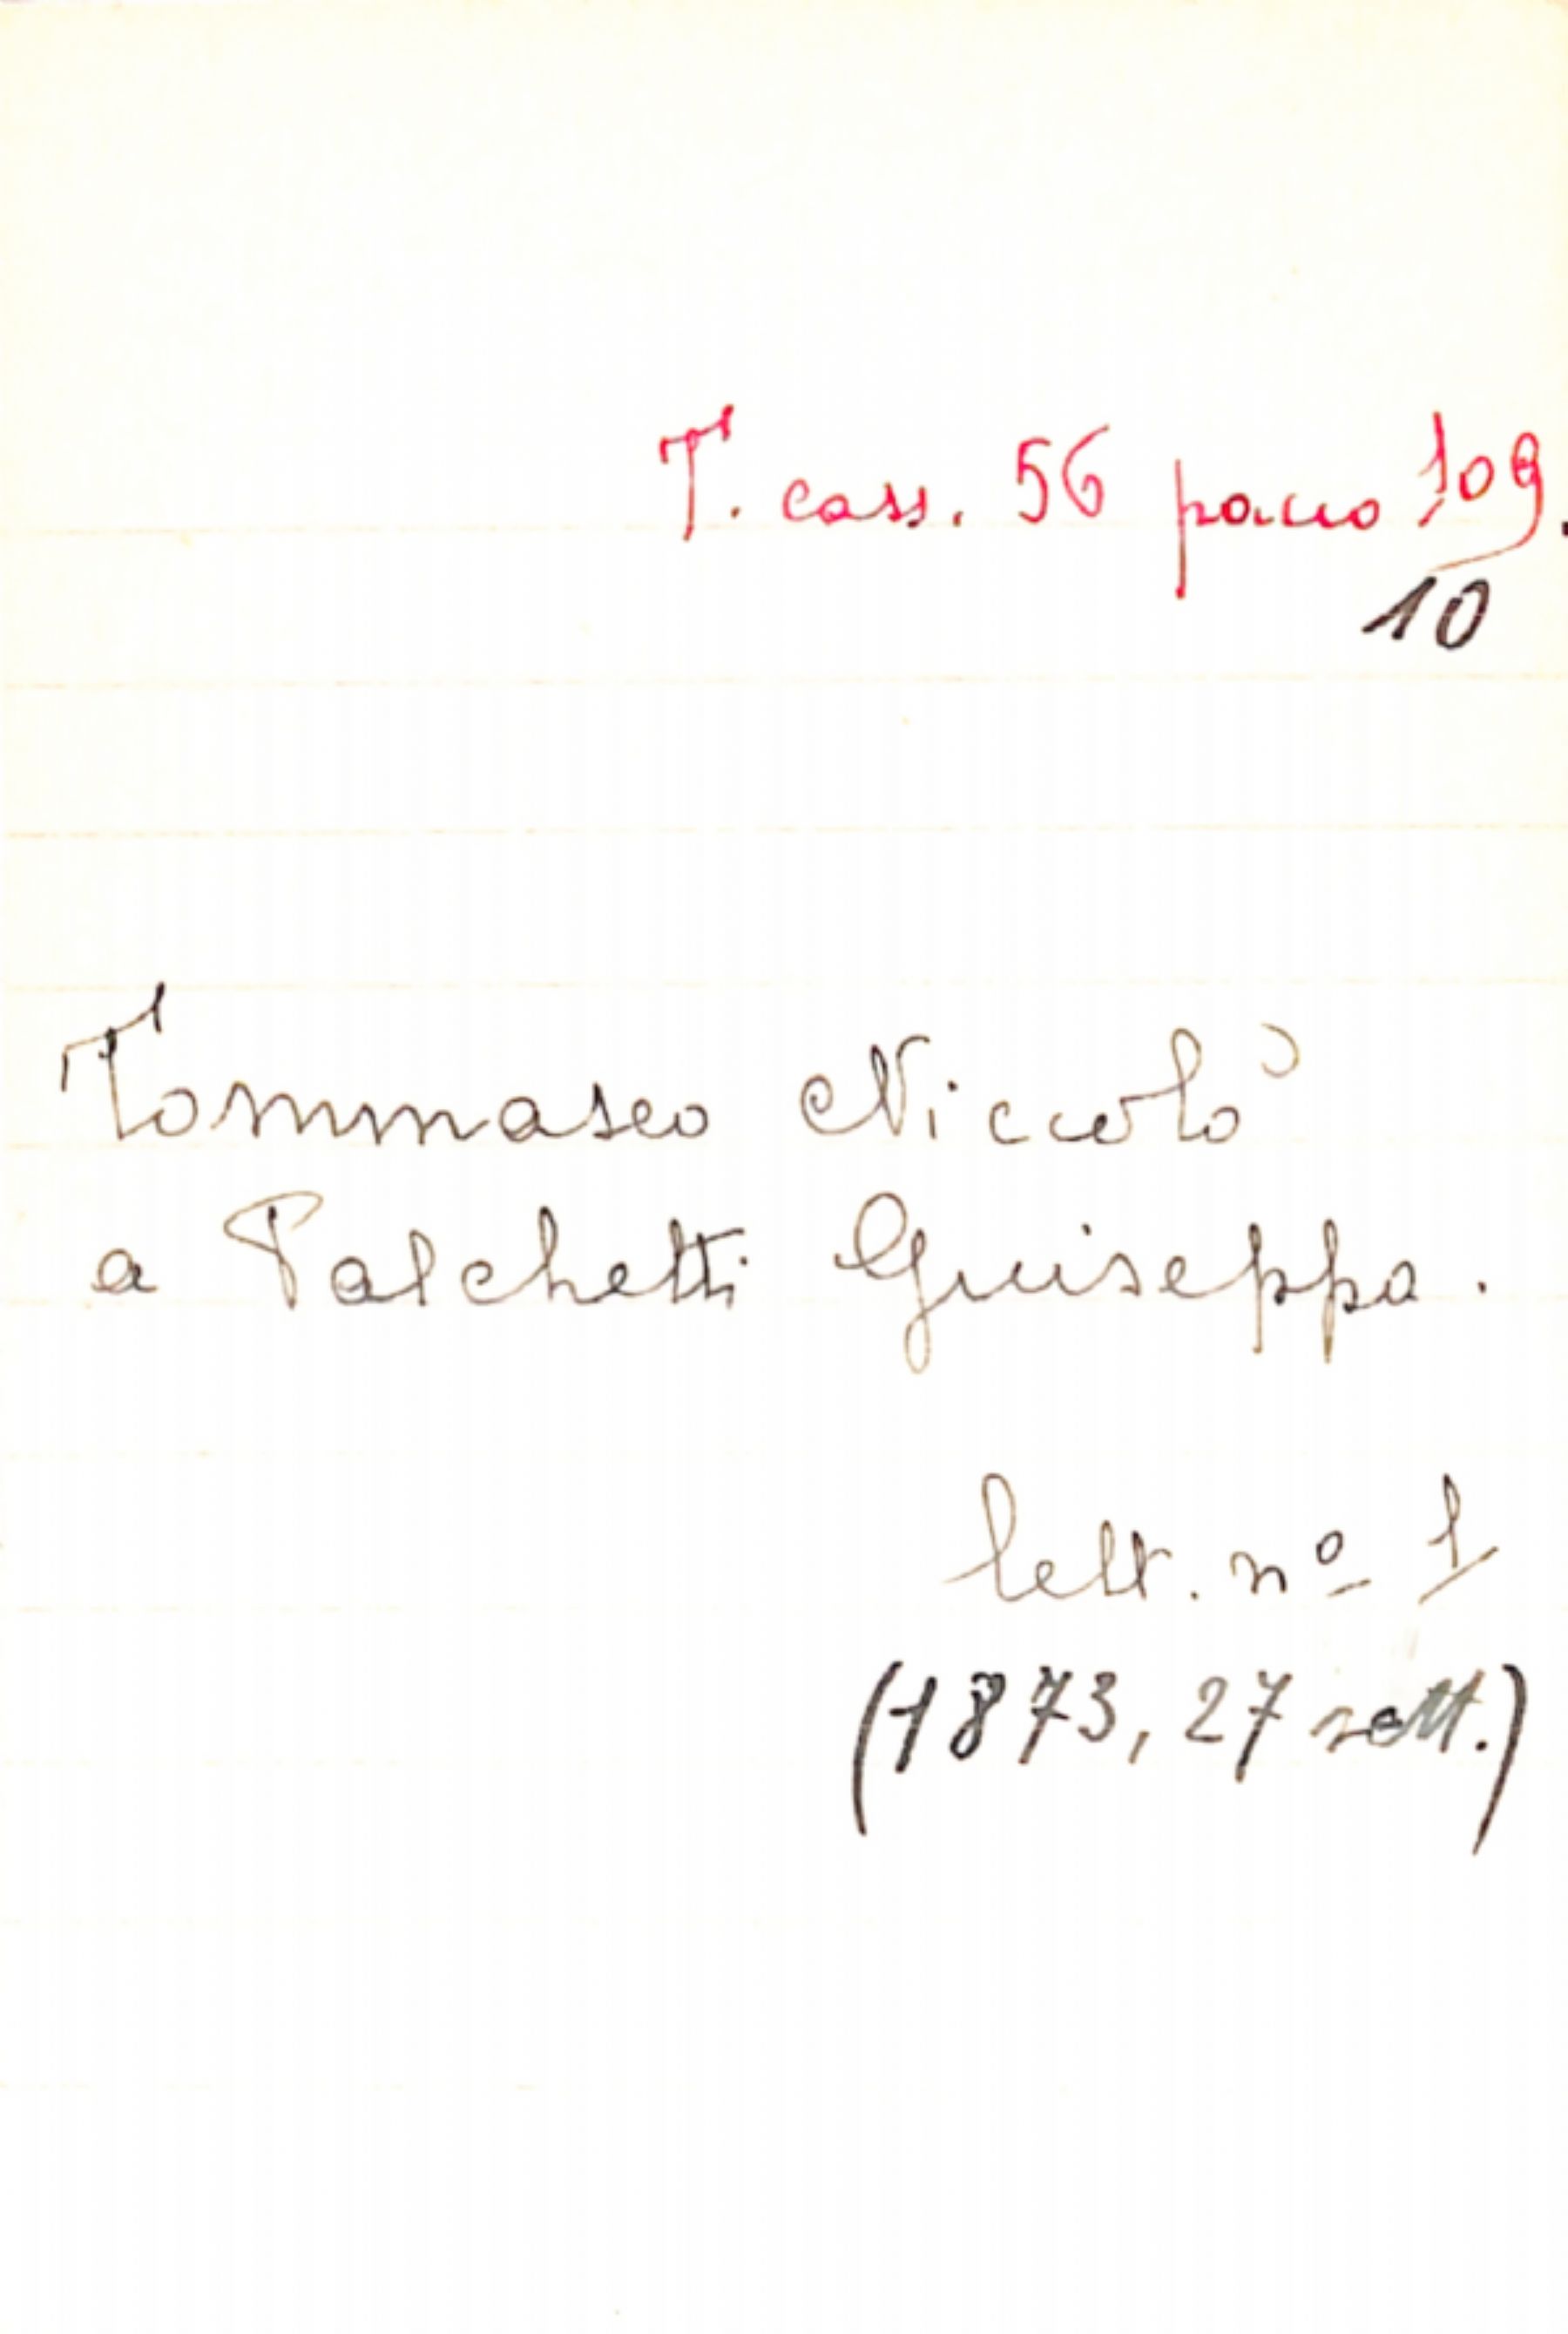 T. cass. 56 pacco 109.
10
Tommaseo Niccolò
a Palchetti Giuseppa.
lett. nº 1
(1873, 27 sett.)